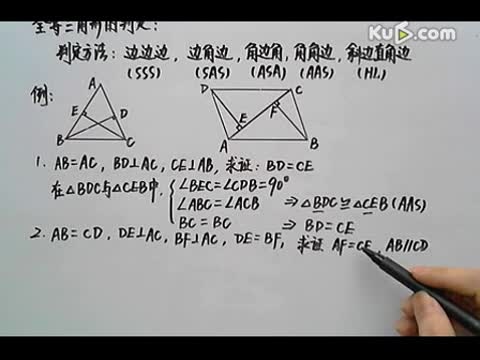 Ku6.com
全等三角形的判定:
判定方法: 边边边, 边角边, 角边角, 角角边, 斜边直角边
(SSS) (SAS) (ASA) (AAS) (HL)
例:
A
E D
B C
D C
E F
A B
1. AB=AC, BD⊥AC, CE⊥AB, 求证: BD=CE
在△BDC与△CEB中, { ∠BEC=∠CDB=90°
∠ABC=∠ACB ⇒ △BDC≌△CEB (AAS)
BC=BC ⇒ BD=CE
2. AB=CD, DE⊥AC, BF⊥AC, DE=BF, 求证 AF=CE, AB//CD